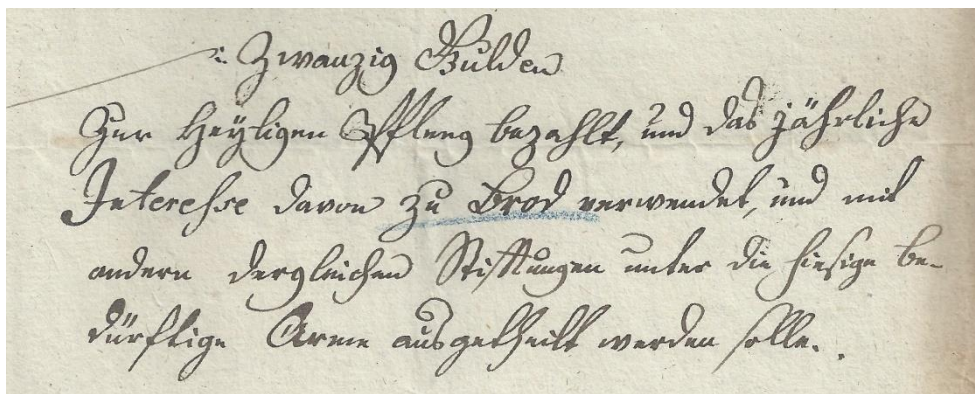 : Zwanzig Gulden
Zur Heyligen Pfleeg bezahlt, und das jährliche
Interesse davon zu Brod verwendet, und mit
andern dergleichen Stifftungen unter die hiesige be-
dürftige Arme ausgetheilt werden solle.